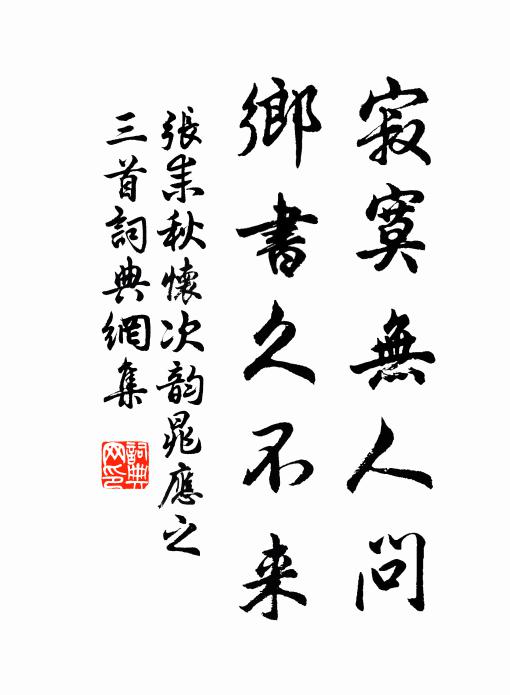 寂寞無人問
鄉書久不来
張耒秋懷次韵晁應之
三首詞典網集
詞典網印